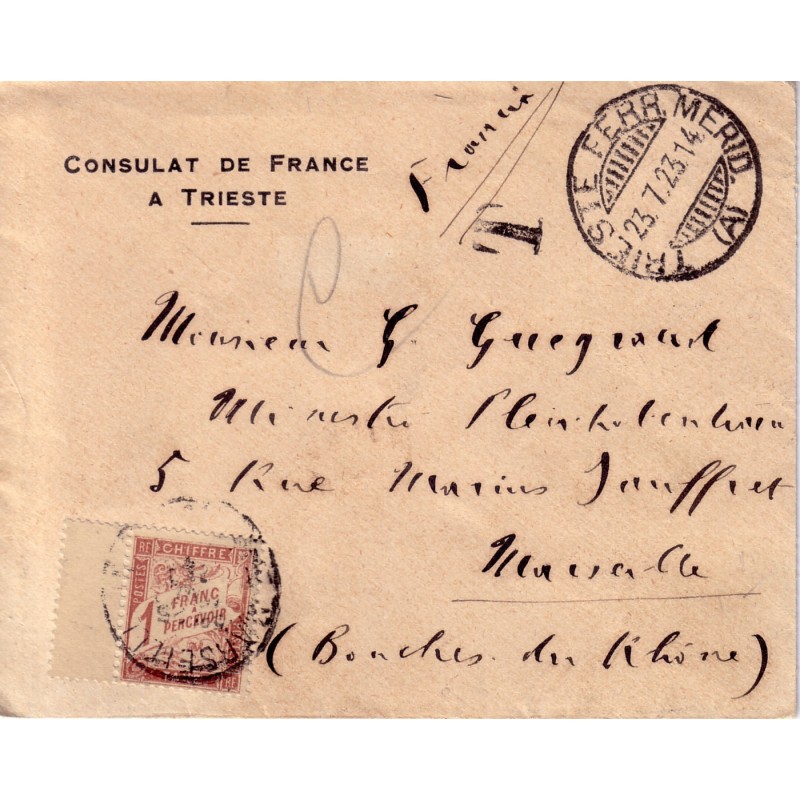 CONSULAT DE FRANCE
A TRIESTE
Francia
T
TRIESTE FERR. MERID. (A)
23.7.23.14
Monsieur G. Gueyraud
Ministre Plénipotentiaire
5 Rue Marius Jauffret
Marseille
(Bouches du Rhône)
RF CHIFFRE
POSTES
1 FRANC
A
PERCEVOIR
RF
MARSEILLE